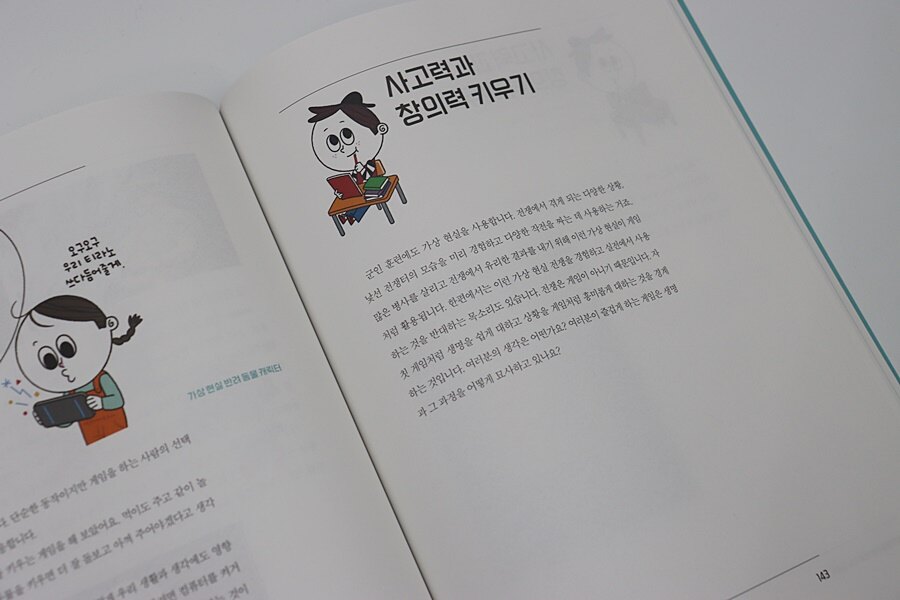 오구오구
우리 티라노
쓰다듬어줄게.
가상 현실 반려 동물 캐릭터
단순한 동작이지만 게임을 하는 사람의 선택
키우는 게임을 해 보았어요. 먹이도 주고 같이 놀
키우면 더 잘 돌보고 아껴 주어야겠다고 생각
우리 생활과 생각에도 영향
컴퓨터를 켜거
것이
사고력과
창의력 키우기
군인 훈련에도 가상 현실을 사용합니다. 전쟁에서 겪게 되는 다양한 상황,
낯선 전쟁터의 모습을 미리 경험하고 다양한 작전을 짜는 데 사용하는 거죠.
많은 병사를 살리고 전쟁에서 유리한 결과를 내기 위해 이런 가상 현실이 게임
처럼 활용됩니다. 한편에서는 이런 가상 현실 전쟁을 경험하고 실전에서 사용
하는 것을 반대하는 목소리도 있습니다. 전쟁은 게임이 아니기 때문입니다. 자
칫 게임처럼 생명을 쉽게 대하고 상황을 게임처럼 흥미롭게 대하는 것을 경계
하는 것입니다. 여러분의 생각은 어떤가요? 여러분이 즐겁게 하는 게임은 생명
과 그 과정을 어떻게 묘사하고 있나요?
143